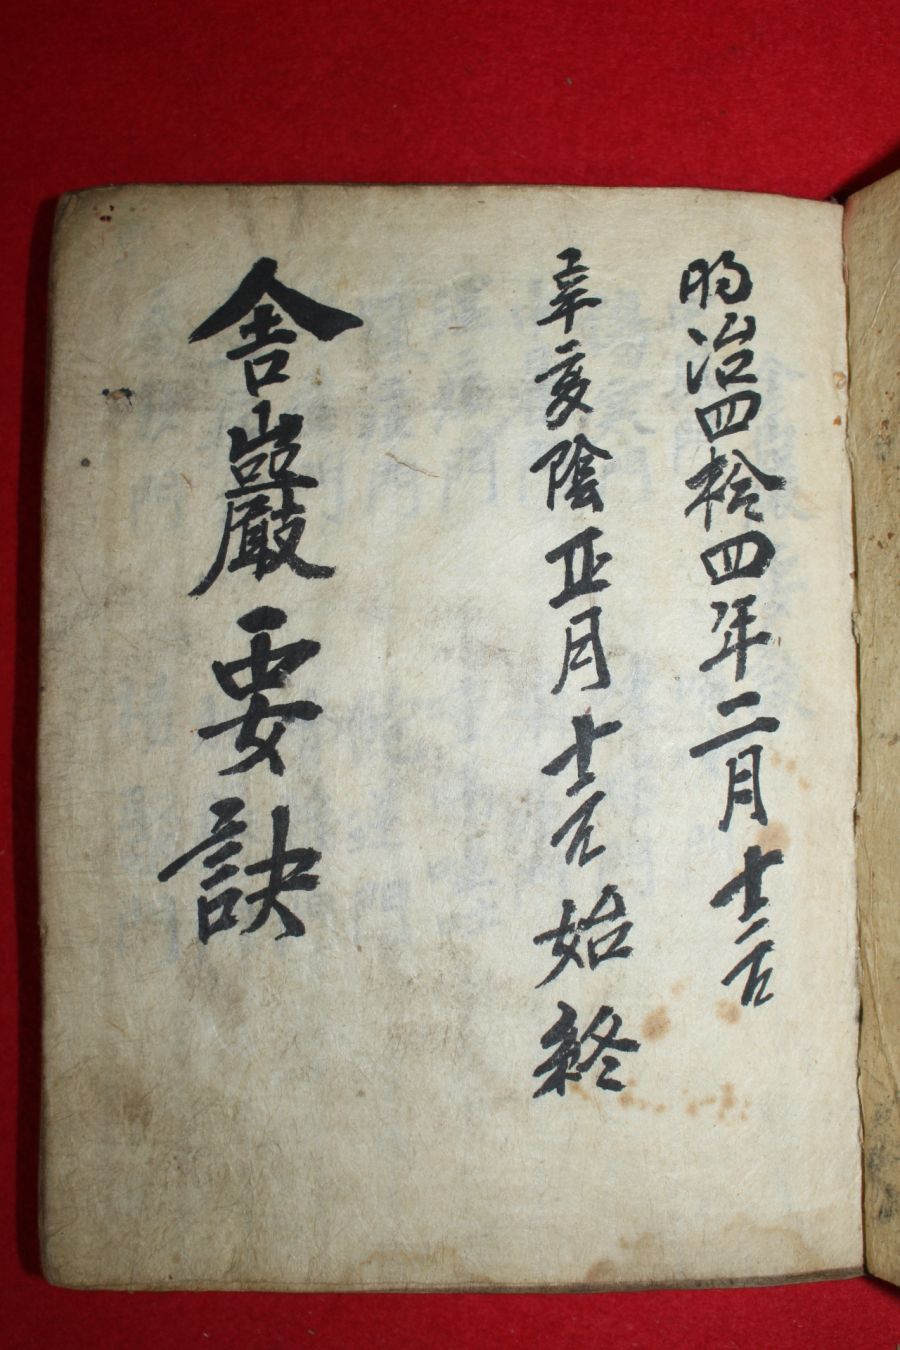 明治四拾四年二月十日
辛亥陰正月十日始終
舍巖要訣